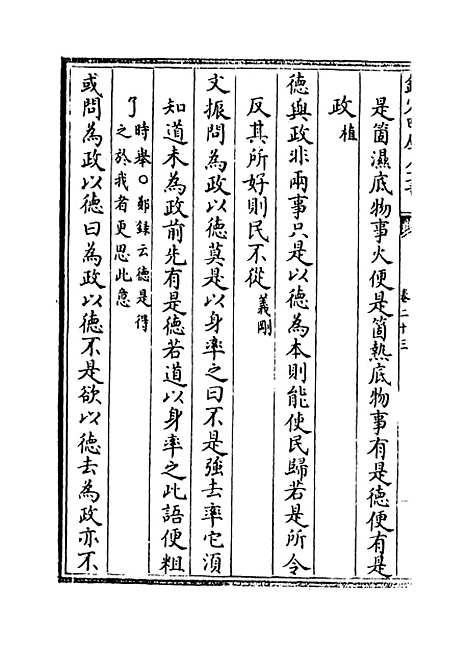 卷二十三
是箇濕底物事火便是箇熱底物事有是德便有是
政植
德與政非兩事只是以德為本則能使民歸若是所令
反其所好則民不從義剛
文振問為政以德莫是以身率之曰不是強去率它湏
知道未為政前先有是德若道以身率之此語便粗
了時舉○鄭錄云德是得之於我者更思此意
或問為政以德曰為政以德不是欲以德去為政亦不